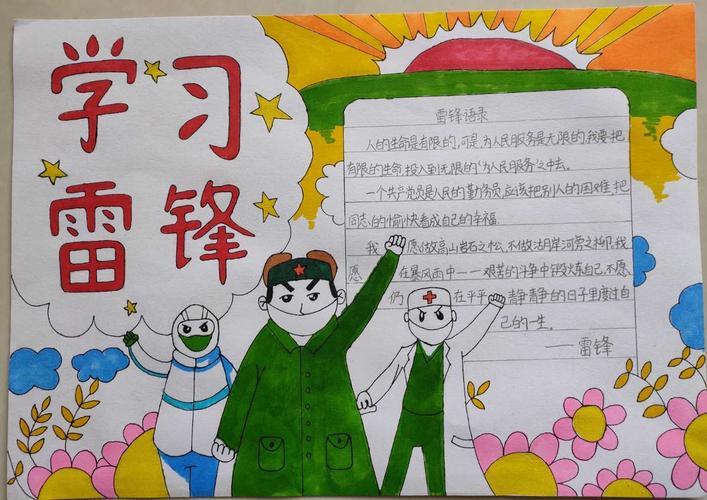 学习
雷锋
雷锋语录
人的生命是有限的,可是,为人民服务是无限的,我要把
有限的生命,投入到无限的“为人民服务”之中去。
一个共产党员是人民的勤务员,应该把别人的困难,把
同志的愉快看成自己的幸福。
我愿做高山岩石之松,不做湖岸河旁之柳,我
愿在暴风雨中——艰苦的斗争中锻炼自己,不愿
们在平平静静的日子里度过自
己的一生。
——雷锋